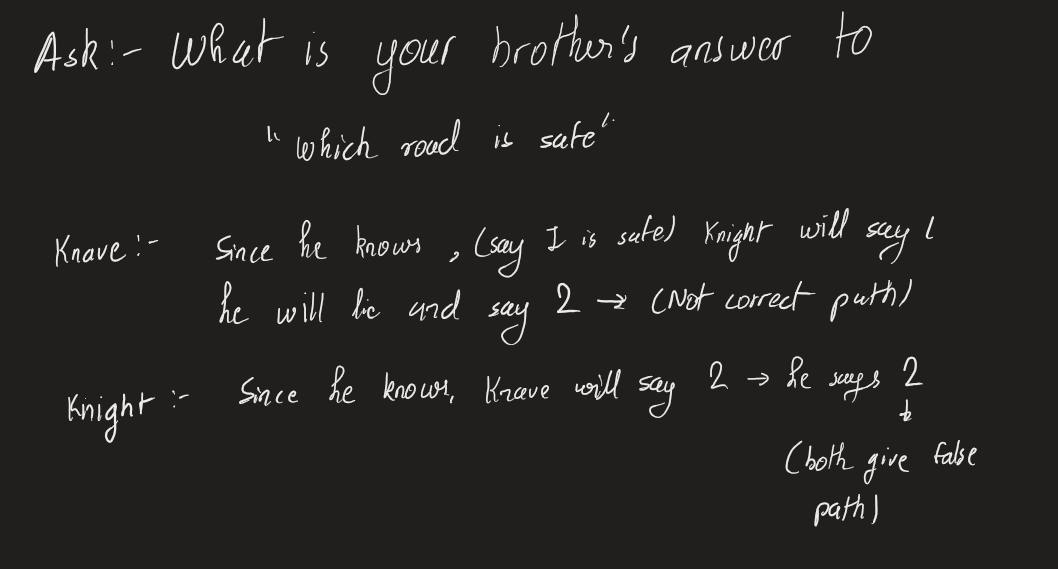 Ask:- What is your brother's answer to
"which road is safe"
Knave:- Since he knows, (say 1 is safe) Knight will say 1
he will lie and say 2 → (Not correct path)
Knight:- Since he knows, Knave will say 2 → he says 2
↓
(both give false
path)